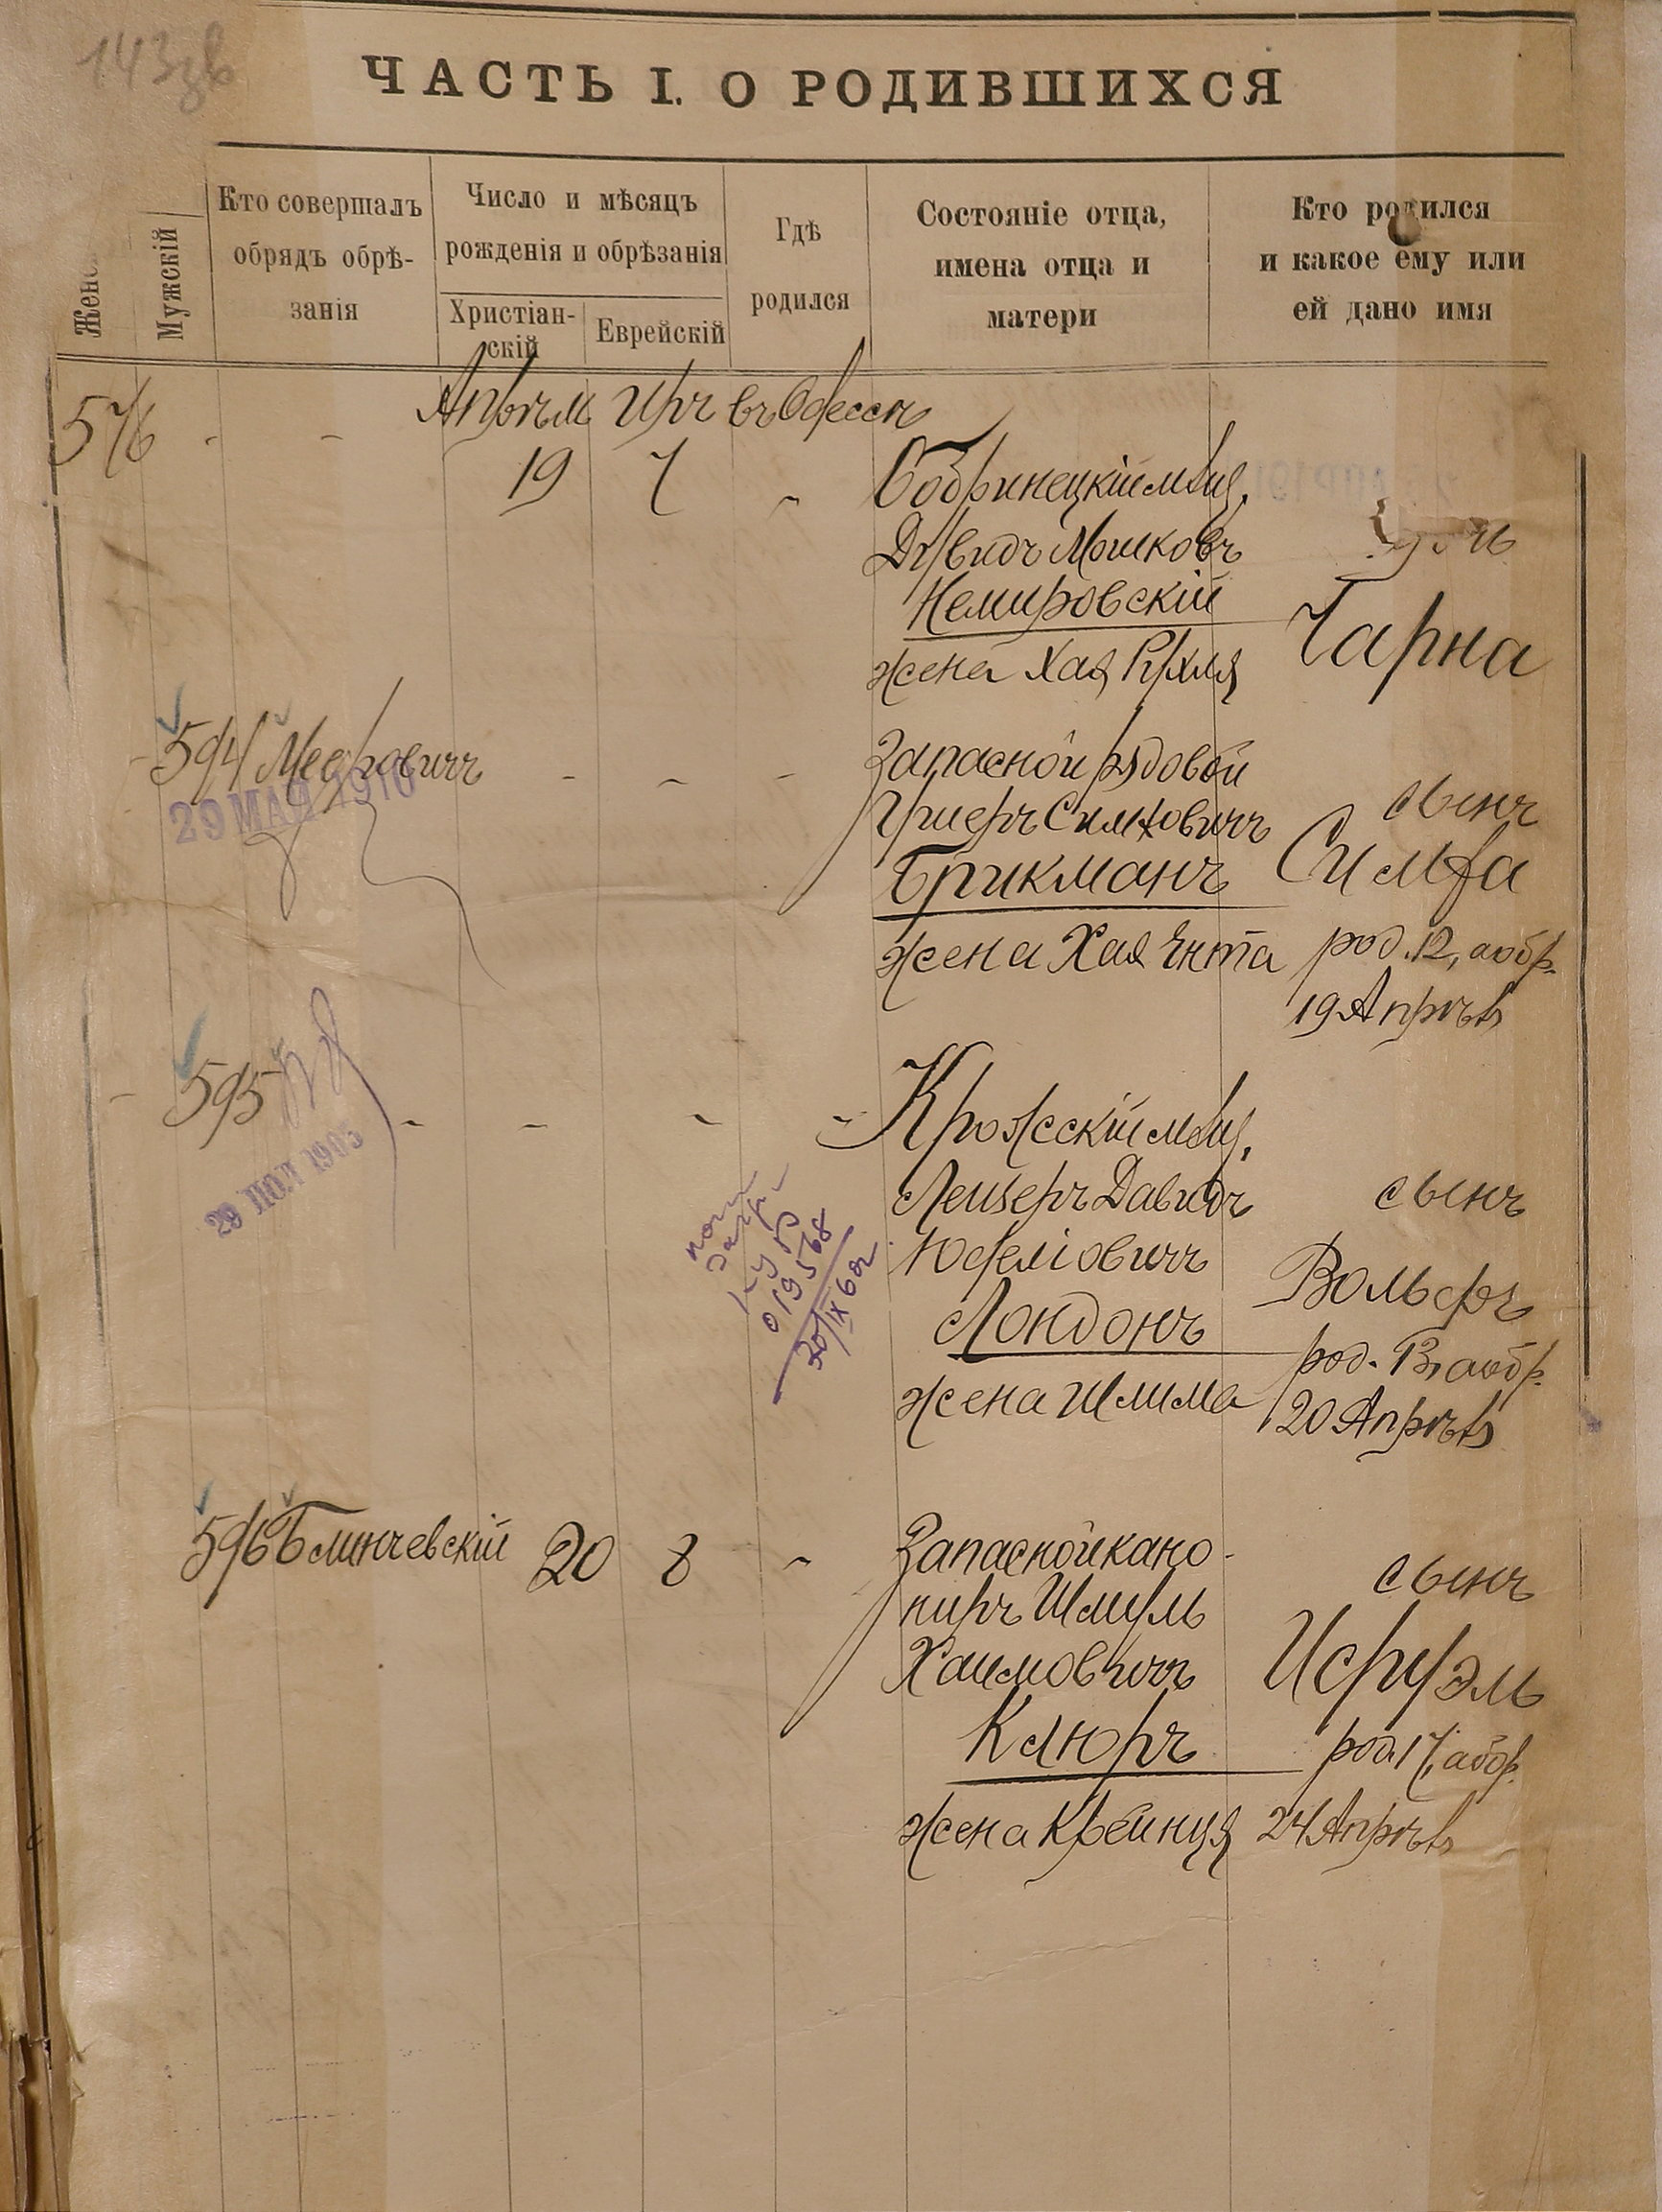 143зв
ЧАСТЬ I. О РОДИВШИХСЯ
Женс
Мужскій
Кто совершалъ
обрядъ обрѣ-
занія
Число и мѣсяцъ
рожденія и обрѣзанія
Христіан-
скій
Еврейскій
Гдѣ
родился
Состояніе отца,
имена отца и
матери
Кто родился
и какое ему или
ей дано имя
Апрѣль Иръ въ Одессѣ
576 - - 19 7 -
Бобринецкій мѣщ.
Давидъ Мошковъ
Немировскій
жена Хая Рухля
дочь
Чарна
594 Мееровичъ - - -
29 МАЯ 1910
Запасной рядовой
Гришеръ Симховичъ
Брикманъ
жена Хая Ента
сынъ
Симха
род. 12, а обр.
19 Апрѣля
- 595 - - - -
29 ІЮЛ 1905
Крожскій мѣщ.
Лейзеръ Давидъ
Юделіовичъ
Лондонъ
жена Шлима
сынъ
Вольфъ
род. 13, а обр.
20 Апрѣля
019568
30/IX 60г
596 Блинчевскій 20 8 -
Запасной кано-
ниръ Шмуль
Хаимовичъ
Клюръ
жена Крейнця
сынъ
Исруэль
род. 17, а обр.
24 Апрѣля